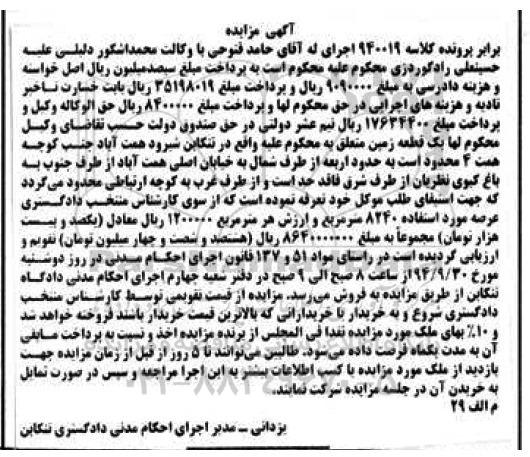 آگهی مزایده
برابر پرونده کلاسه ۹۴۰۰۱۹ اجرای له آقای حامد فتوحی با وکالت محمداشکور دلیلی علیه
حسینعلی رادگوردزی محکوم علیه محکوم است به پرداخت مبلغ سیصدمیلیون ریال اصل خواسته
و هزینه دادرسی به مبلغ ۹۰۹۰۰۰۰ ریال و پرداخت مبلغ ۳۵۱۹۸۰۱۹ ریال بابت خسارت تاخیر
تادیه و هزینه های اجرایی در حق محکوم لها و پرداخت مبلغ ۸۴۰۰۰۰۰ ریال حق الوکاله وکیل و
پرداخت مبلغ ۱۷۶۳۴۴۰۰ ریال نیم عشر دولتی در حق صندوق دولت حسب تقاضای وکیل
محکوم لها یک قطعه زمین متعلق به محکوم علیه واقع در تنکابن شیرود همت آباد جنب کوچه
همت ۴ محدود است به حدود اربعه از طرف شمال به خیابان اصلی همت آباد از طرف جنوب به
باغ کیوی نظریان از طرف شرق فاقد حد است و از طرف غرب به کوچه ارتباطی محدود می‌گردد
که جهت استیفای طلب موکل خود تعرفه نموده است که از سوی کارشناس منتخب دادگستری
عرصه مورد استفاده ۸۲۴۰ مترمربع و ارزش هر مترمربع ۱۲۰۰۰۰۰ ریال معادل (یکصد و بیست
هزار تومان) مجموعاً به مبلغ ۸۶۴۰۰۰۰۰۰۰ ریال (هشتصد و شصت و چهار میلیون تومان) تقویم و
ارزیابی گردیده است در راستای مواد ۵۱ و ۱۳۷ قانون اجرای احکام مدنی در روز دوشنبه
مورخ ۹۴/۹/۳۰ از ساعت ۸ صبح الی ۹ صبح در دفتر شعبه چهارم اجرای احکام مدنی دادگاه
تنکابن از طریق مزایده به فروش می‌رسد. مزایده از قیمت تقویمی توسط کارشناس منتخب
دادگستری شروع و به خریدار یا خریدارانی که بالاترین قیمت خریدار باشند فروخته خواهد شد
و ۱۰٪ بهای ملک مورد مزایده نقدا فی المجلس از برنده مزایده اخذ و نسبت به پرداخت مابقی
آن به مدت یکماه فرصت داده می‌شود. طالبین می‌توانند تا ۵ روز از قبل از زمان مزایده جهت
بازدید از ملک مورد مزایده یا کسب اطلاعات بیشتر به این اجرا مراجعه و سپس در صورت تمایل
به خریدن آن در جلسه مزایده شرکت نمایند.
م الف ۲۹
یزدانی – مدیر اجرای احکام مدنی دادگستری تنکابن